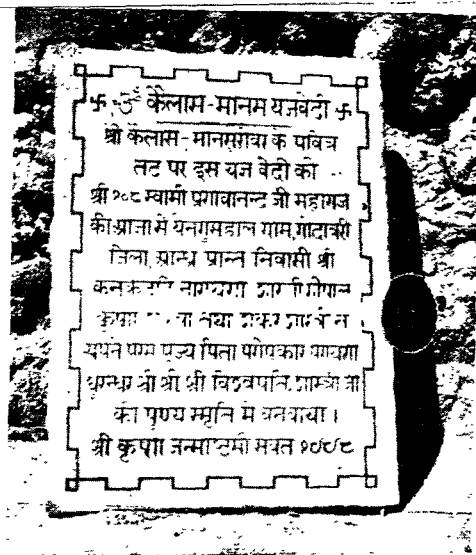 卐 ॐ कैलास-मानस यज्ञवेदी 卐
श्री कैलास-मानसरोवर के पवित्र
तट पर इस यज्ञ वेदी को
श्री १०८ स्वामी प्रणवानन्द जी महाराज
की आज्ञा से येनुगुमहाल ग्राम, गोदावरी
जिला, आन्ध्र प्रान्त निवासी श्री
नारायण
कृष्ण तथा शंकर
अपने परम पूज्य पिता परोपकार परायण
धुरन्धर श्री श्री श्री विश्वपति शास्त्री जी
की पुण्य स्मृति में बनवाया।
श्री कृष्ण जन्माष्टमी संवत